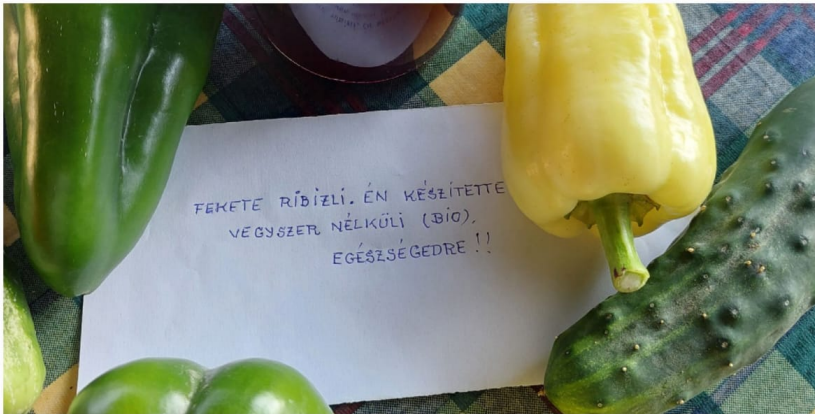 FEKETE RIBIZLI. ÉN KÉSZÍTETTE
VEGYSZER NÉLKÜLI (BIO).
EGÉSZSÉGEDRE !!